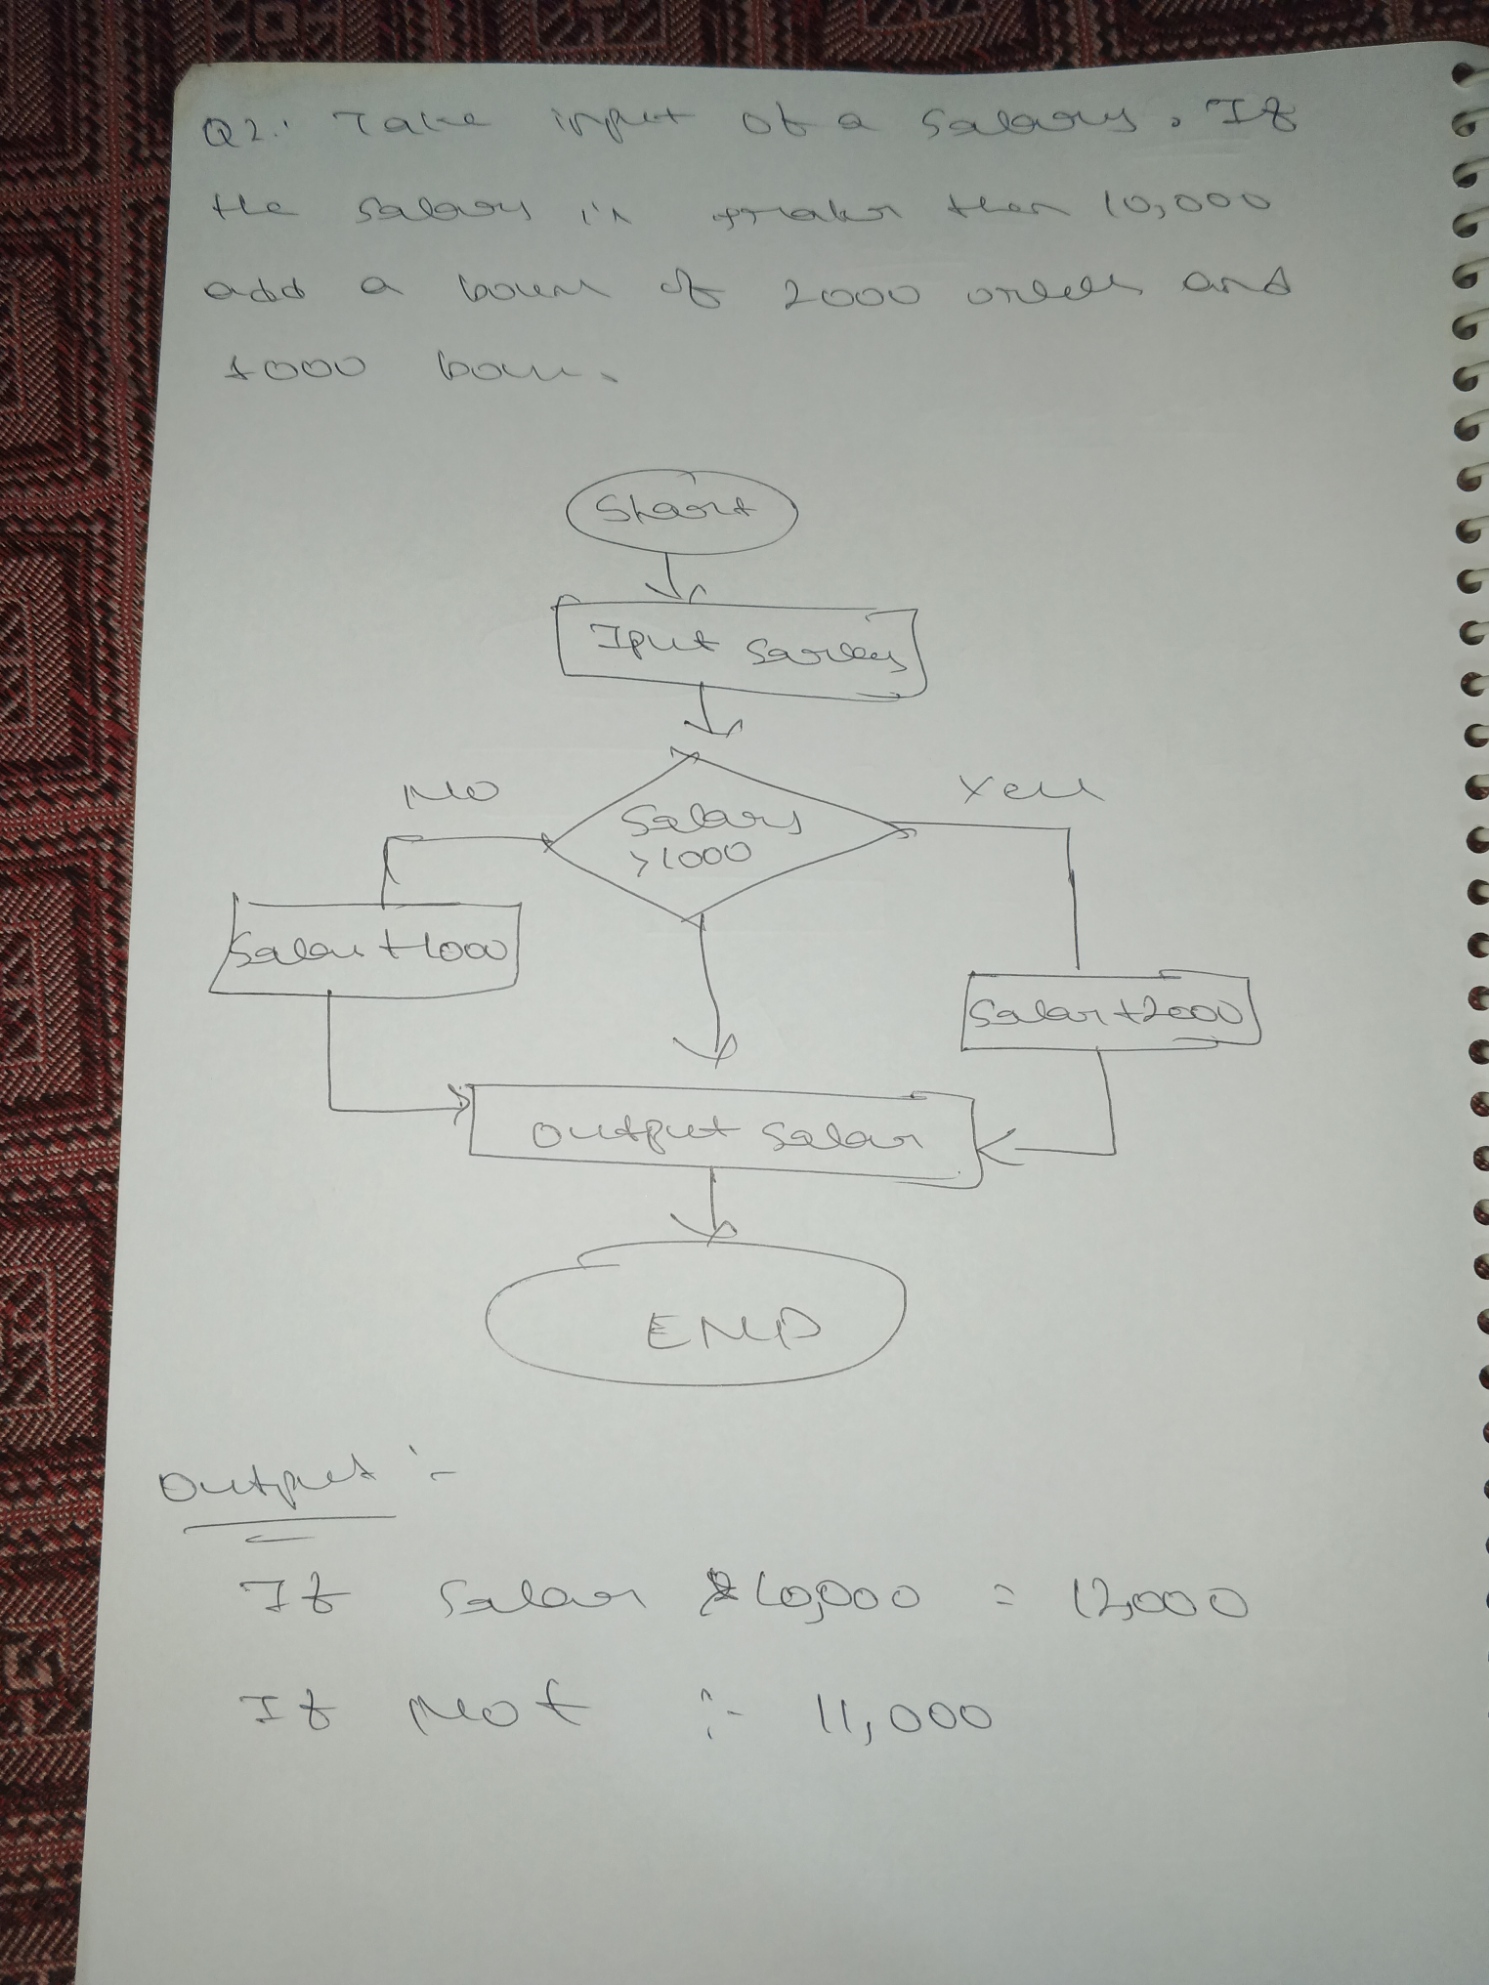 Q2.: Take input of a salary. If
the salary is greater than 10,000
add a of 2000 and
1000
Start
Iput
No
Yes
Salary
>1000
Salar +1000
Salar +2000
output Salar
END
Output :-
If Salar 10,000 = 12,000
If Not :- 11,000